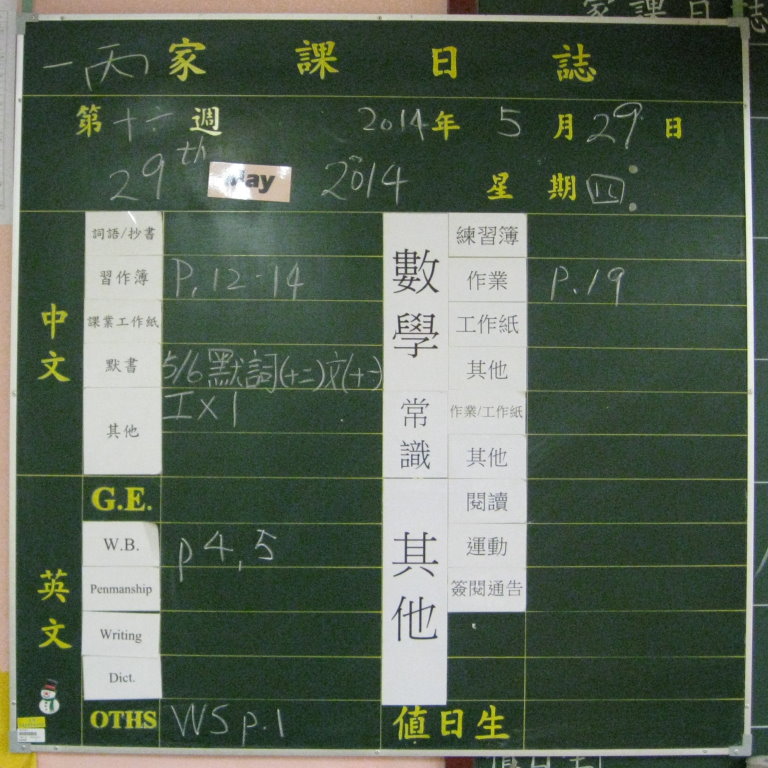 一丙 家課日誌
第十六週 2014年 5月29日
29th May 2014 星期四
中文
詞語/抄書
習作簿 P.12-14
課業工作紙
默書 5/6默詞(十二)文(十一)
其他 工x1
英文
G.E.
W.B. p 4,5
Penmanship
Writing
Dict.
OTHS WS p.1
數學
練習簿
作業 P.19
工作紙
其他
常識
作業/工作紙
其他
其他
閱讀
運動
簽閱通告
值日生
家課日誌